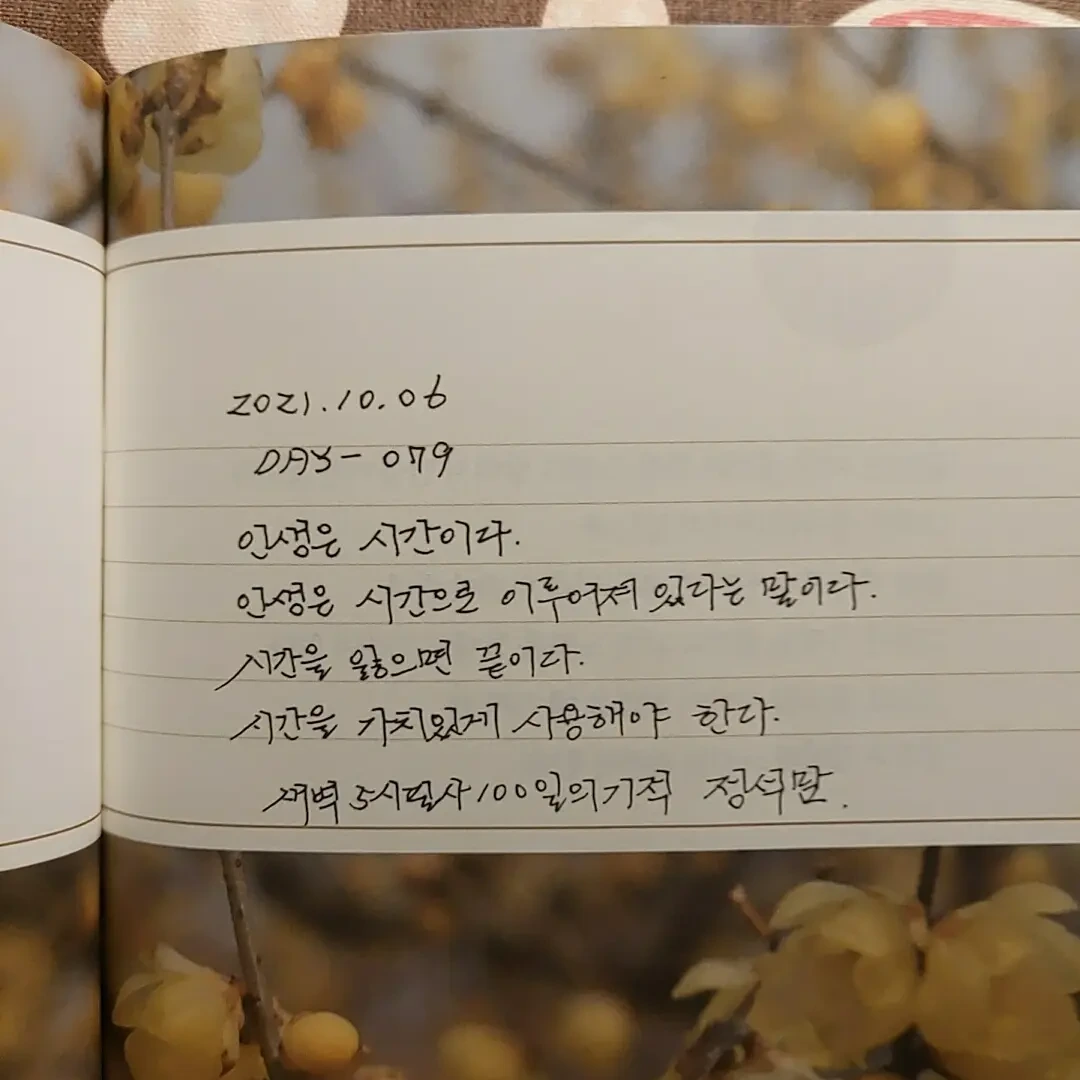 2021.10.06
DAY- 079
인생은 시간이다.
인생은 시간으로 이루어져 있다는 말이다.
시간을 잃으면 끝이다.
시간을 가치있게 사용해야 한다.
새벽 5시필사100일의기적 정석